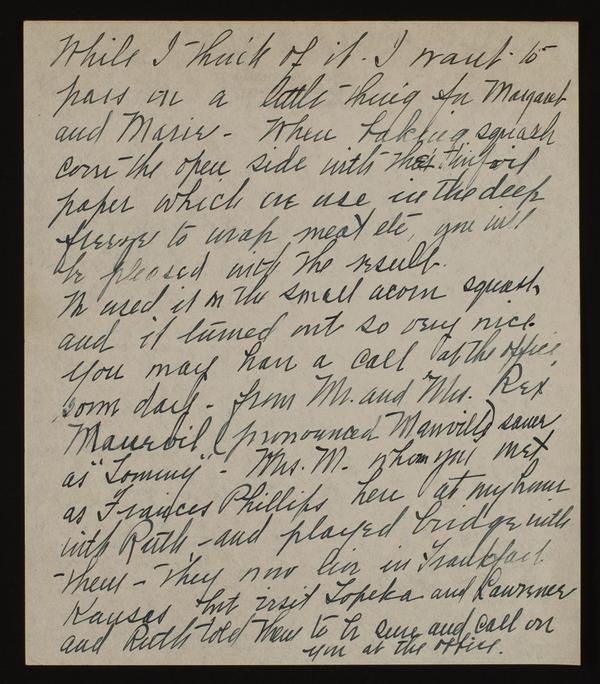 While I think of it. I want to
pass on a little thing for Margaret
and Marie - When baking squash
cover the open side with that tinfoil
paper which we use in the deep
freeze to wrap meat etc, you will
be pleased with the result.
We used it on the small acorn squash
and it turned out so very nice.
You may have a call at the office
some day - from Mr. and Mrs. Rex
(pronounced Manville) same
as "Tommy" - Mrs. M. whom you met
as Frances Phillips here at my home
with Ruth - and played bridge with
them - They now live in Frankfort
Kansas but visit Topeka and Lawrence
and Ruth told them to be sure and call on
you at the office.